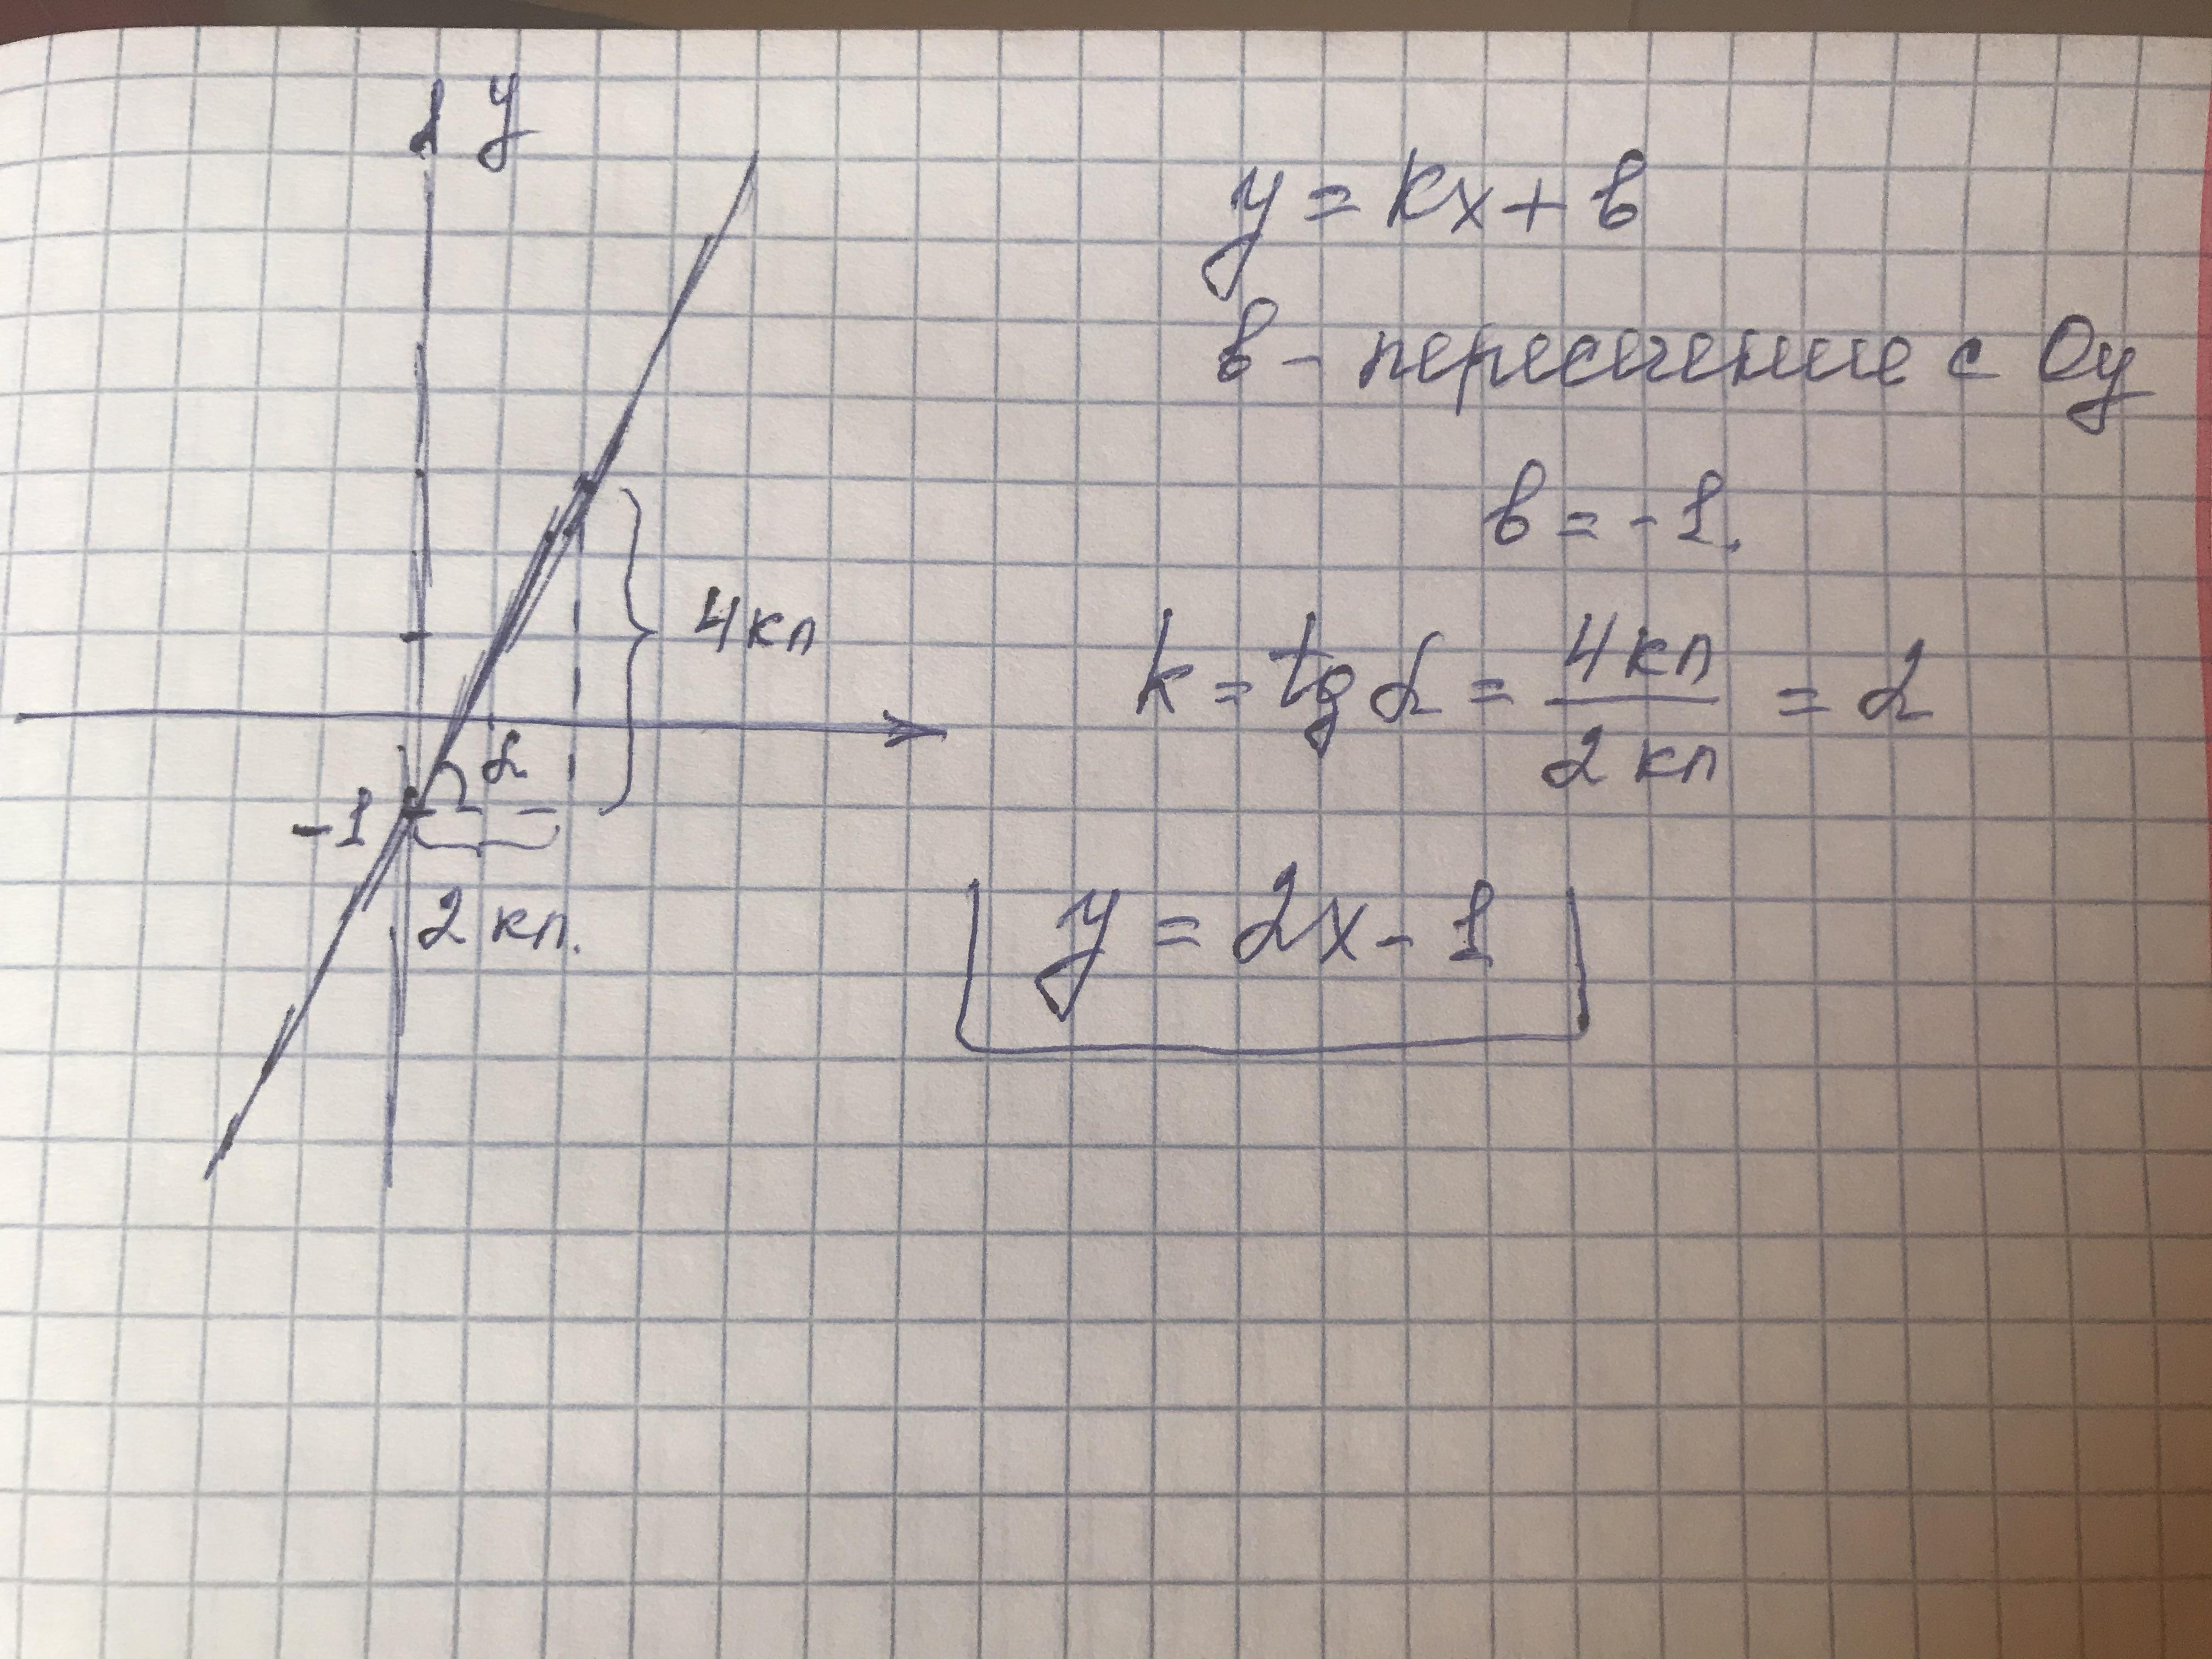 y
4кл
α
-1
2 кл.
y = kx + b
b - пересечение с Oy
b = -1.
k = tg α = 4кл / 2 кл = 2
y = 2x - 1